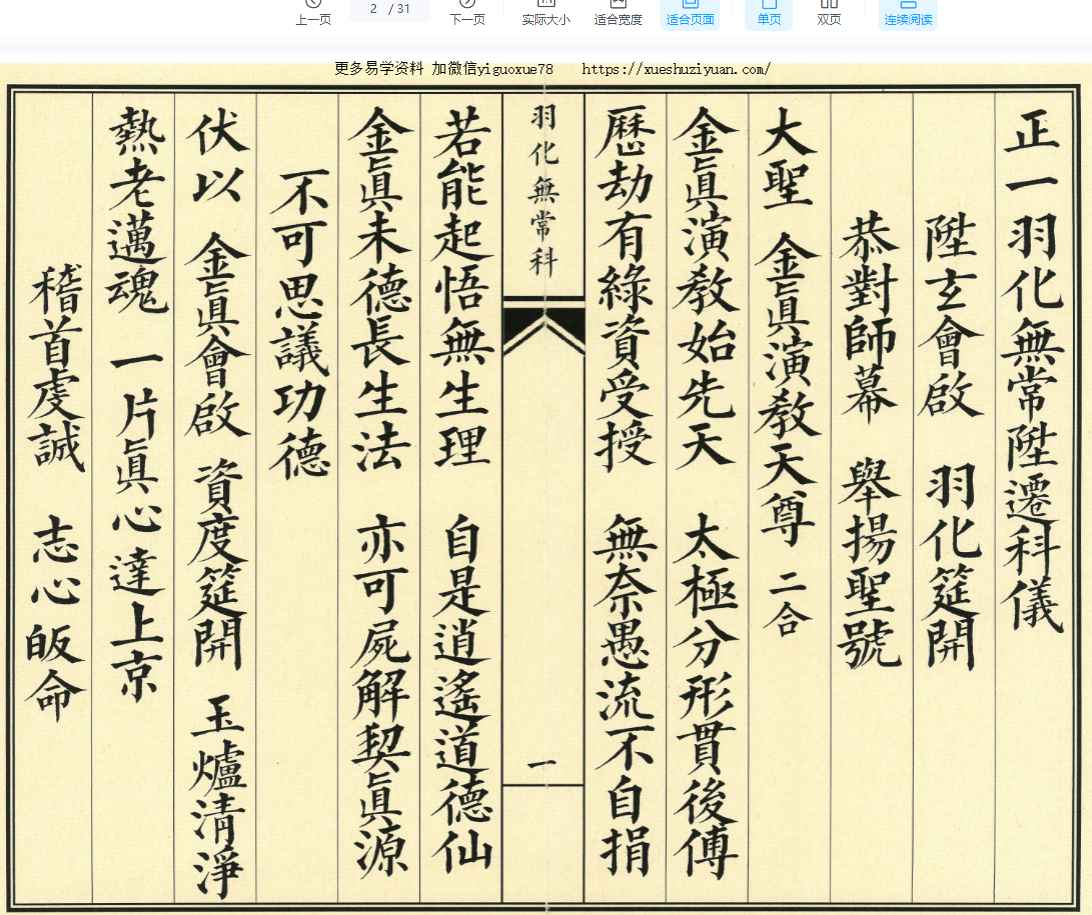 上一页 2 / 31 下一页 实际大小 适合宽度 适合页面 单页 双页 连续阅读
更多易学资料 加微信yiguoxue78 https://xueshuziyuan.com/
正一羽化無常陞遷科儀
陞玄會啟 羽化筵開
恭對師幕 舉揚聖號
大聖 金眞演教天尊 二合
金眞演教始先天 太極分形貫後傳
歷劫有綠資受授 無奈愚流不自捐
羽化無常科
一
若能起悟無生理 自是逍遙道德仙
金眞未德長生法 亦可屍解契眞源
不可思議功德
伏以 金眞會啟 資度筵開 玉爐清淨
熱老邁魂 一片眞心達上京
稽首虔誠 志心皈命